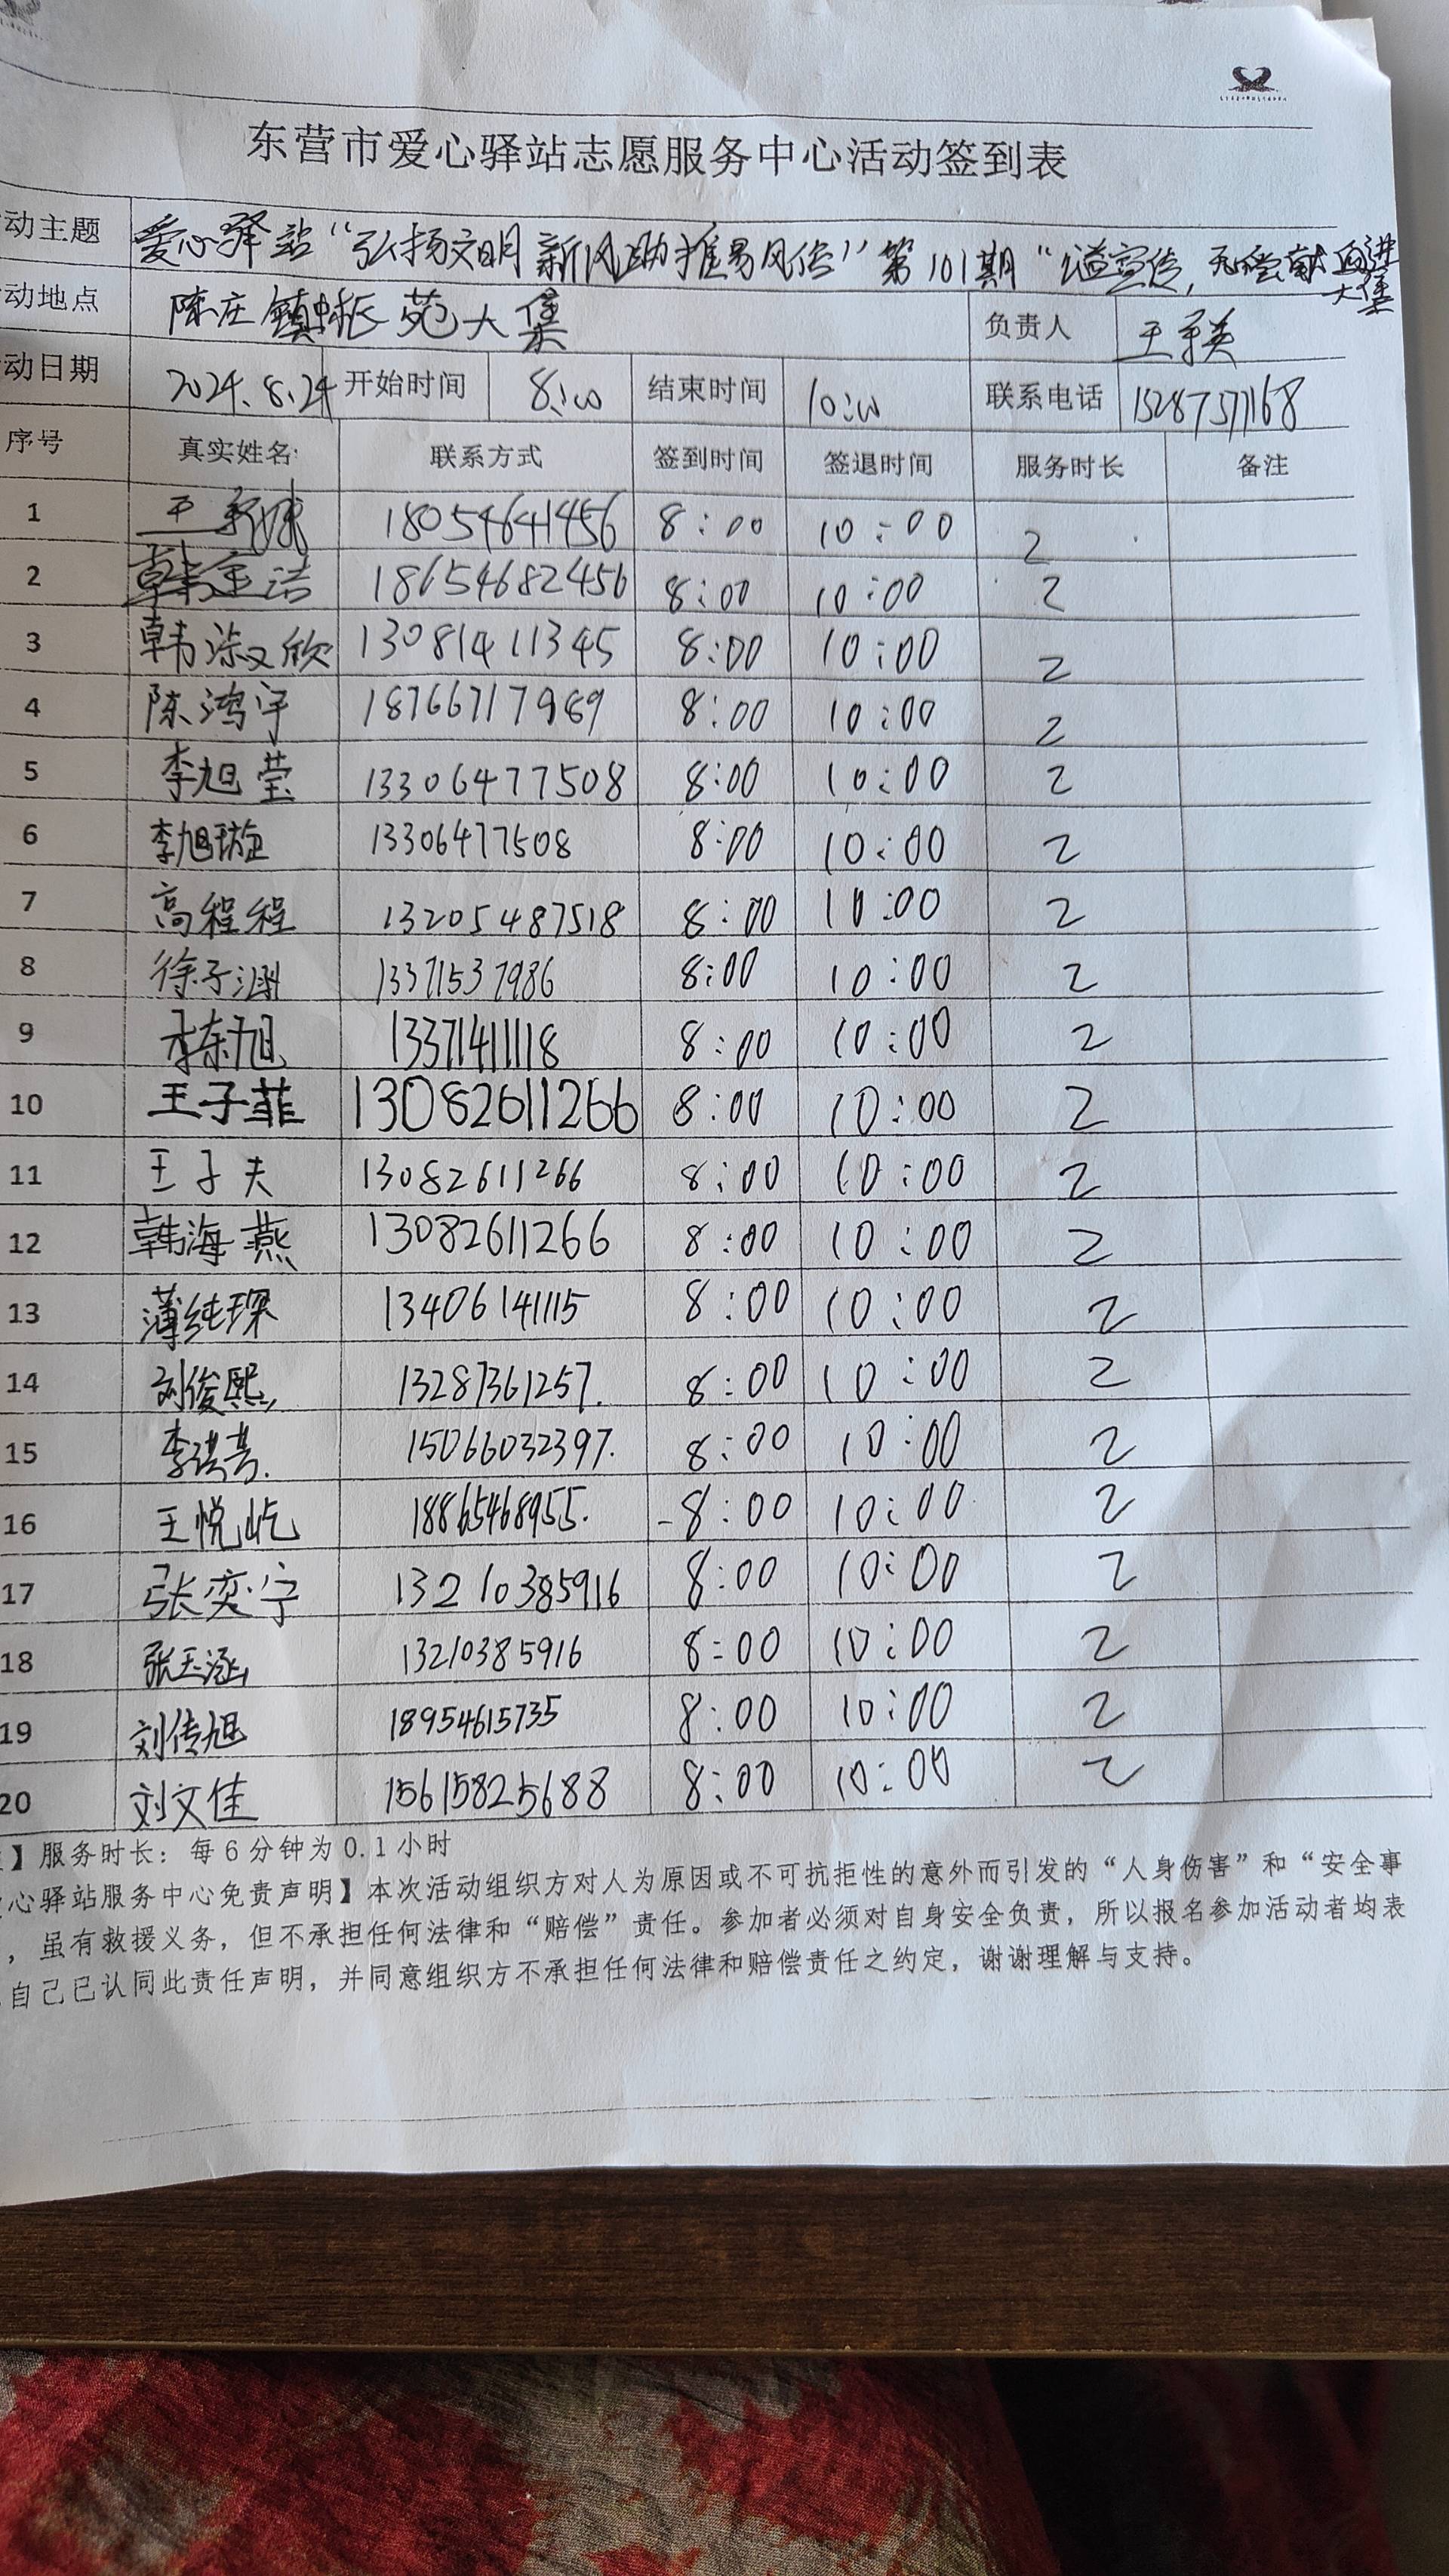 东营市爱心驿站志愿服务中心活动签到表
动主题 爱心驿站“弘扬文明新风助推易风俗”第101期“公益宣传，无偿献血进大集
动地点 陈庄镇振苑大集 负责人 王
动日期 2024.8.24 开始时间 8:00 结束时间 10:00 联系电话 15287571168
序号 真实姓名 联系方式 签到时间 签退时间 服务时长 备注
1 王 18054641456 8:00 10:00 2
2 韩 洁 18654682456 8:00 10:00 2
3 韩淑欣 13081411345 8:00 10:00 2
4 陈鸿宇 18766717989 8:00 10:00 2
5 李旭莹 13306477508 8:00 10:00 2
6 李旭璇 13306477508 8:00 10:00 2
7 高程程 13205487518 8:00 10:00 2
8 徐子涵 13371537986 8:00 10:00 2
9 李东旭 13371411118 8:00 10:00 2
10 王子菲 13082611266 8:00 10:00 2
11 王子夫 13082611266 8:00 10:00 2
12 韩海燕 13082611266 8:00 10:00 2
13 薄纯琛 13406141115 8:00 10:00 2
14 刘俊熙 13287361257. 8:00 10:00 2
15 李 15066032397. 8:00 10:00 2
16 王悦屹 18865468955. 8:00 10:00 2
17 张奕宁 13210385916 8:00 10:00 2
18 张玉涵 13210385916 8:00 10:00 2
19 刘传旭 18954615735 8:00 10:00 2
20 刘文佳 15615825688 8:00 10:00 2
】服务时长：每6分钟为0.1小时
心驿站服务中心免责声明】本次活动组织方对人为原因或不可抗拒性的意外而引发的“人身伤害”和“安全事
，虽有救援义务，但不承担任何法律和“赔偿”责任。参加者必须对自身安全负责，所以报名参加活动者均表
自己已认同此责任声明，并同意组织方不承担任何法律和赔偿责任之约定，谢谢理解与支持。